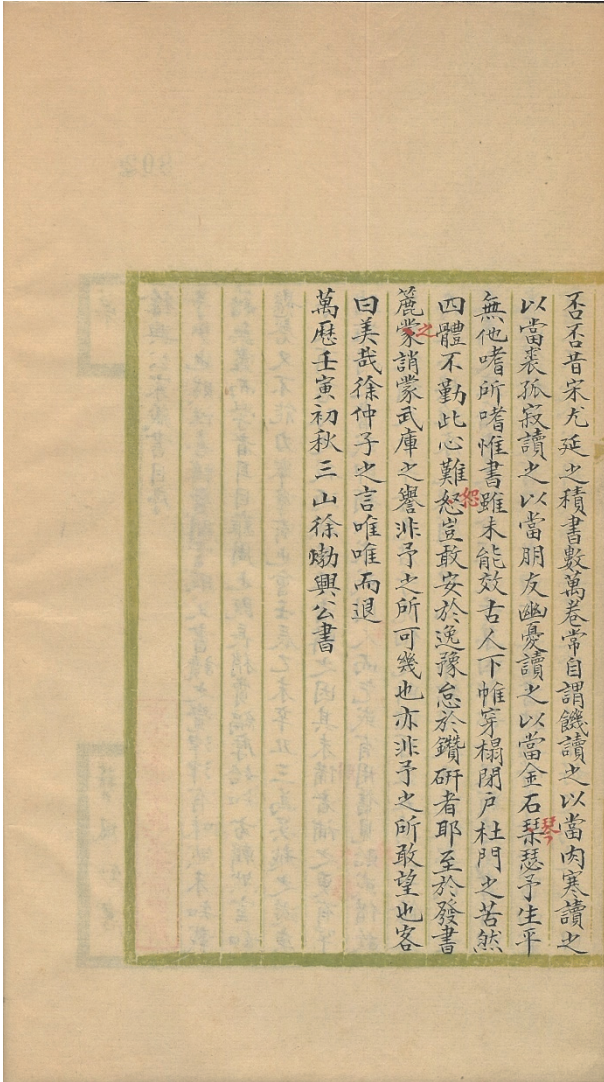 否否昔宋尤延之積書數萬卷常自謂饑讀之以當肉寒讀之
以當裘孤寂讀之以當朋友幽憂讀之以當金石琹瑟予生平
琴
無他嗜所嗜惟書雖未能效古人下帷穿榻閉戶杜門之苦然
四體不勤此心難怒豈敢安於逸豫怠於鑽研者耶至於發書
恕
簏蒙誚蒙武庫之譽非予之所可幾也亦非予之所敢望也客
之
曰美哉徐仲子之言唯唯而退
萬曆壬寅初秋三山徐𤊹興公書